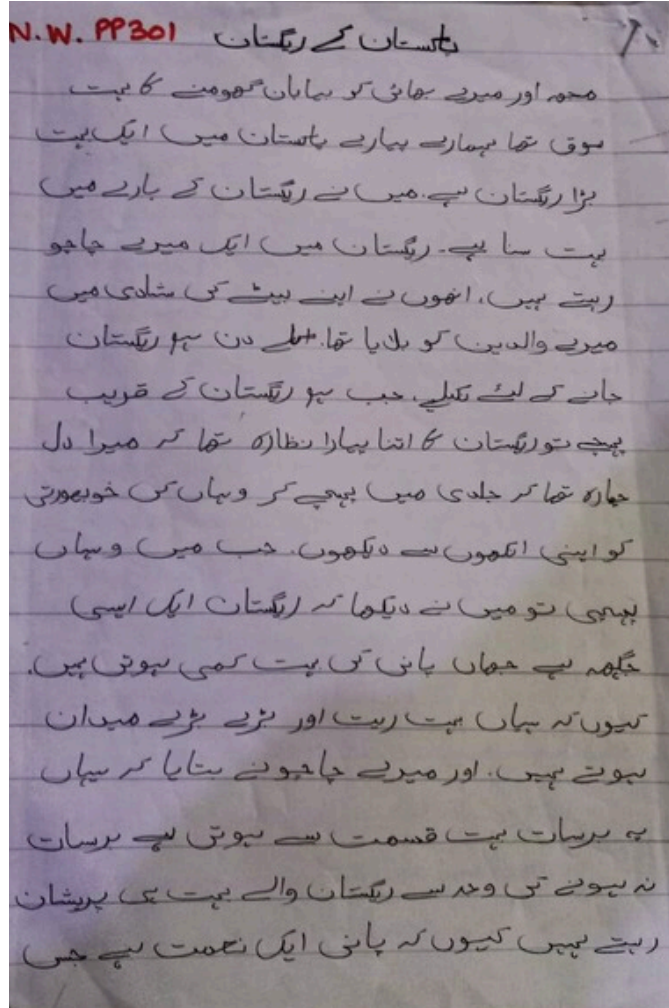 N.W. PP301 پاکستان کے ریگستان
مجھے اور میرے بھائی کو بیابان گھومنے کا بہت
شوق تھا ہمارے پیارے پاکستان میں ایک بہت
بڑا ریگستان ہے. میں نے ریگستان کے بارے میں
بہت سنا ہے. ریگستان میں ایک میرے چاچو
رہتے ہیں. انھوں نے اپنے بیٹے کی شادی میں
میرے والدین کو بلایا تھا. دن ہم ریگستان
جانے کے لئے نکلے. جب ہم ریگستان کے قریب
پہچے تو ریگستان کا اتنا پیارا نظارہ تھا کہ میرا دل
چارہ تھا کہ جلدی میں پہچے کر وہاں کی خوبصورتی
کو اپنی انکھوں سے دیکھوں. جب میں وہاں
پہچی تو میں نے دیکھا کہ ریگستان ایک ایسی
جگہہ ہے جہاں پانی کی بہت کمی ہوتی ہیں.
کیوں کہ یہاں بہت ریت اور بڑے بڑے میدان
ہوتے ہیں. اور میرے چاچو نے بتایا کہ یہاں
پہ برسات بہت قسمت سے ہوتی ہے برسات
نہ ہونے کی وجہ سے ریگستان والے بہت ہی پریشان
رہتے ہیں کیوں کہ پانی ایک نعمت ہے جس